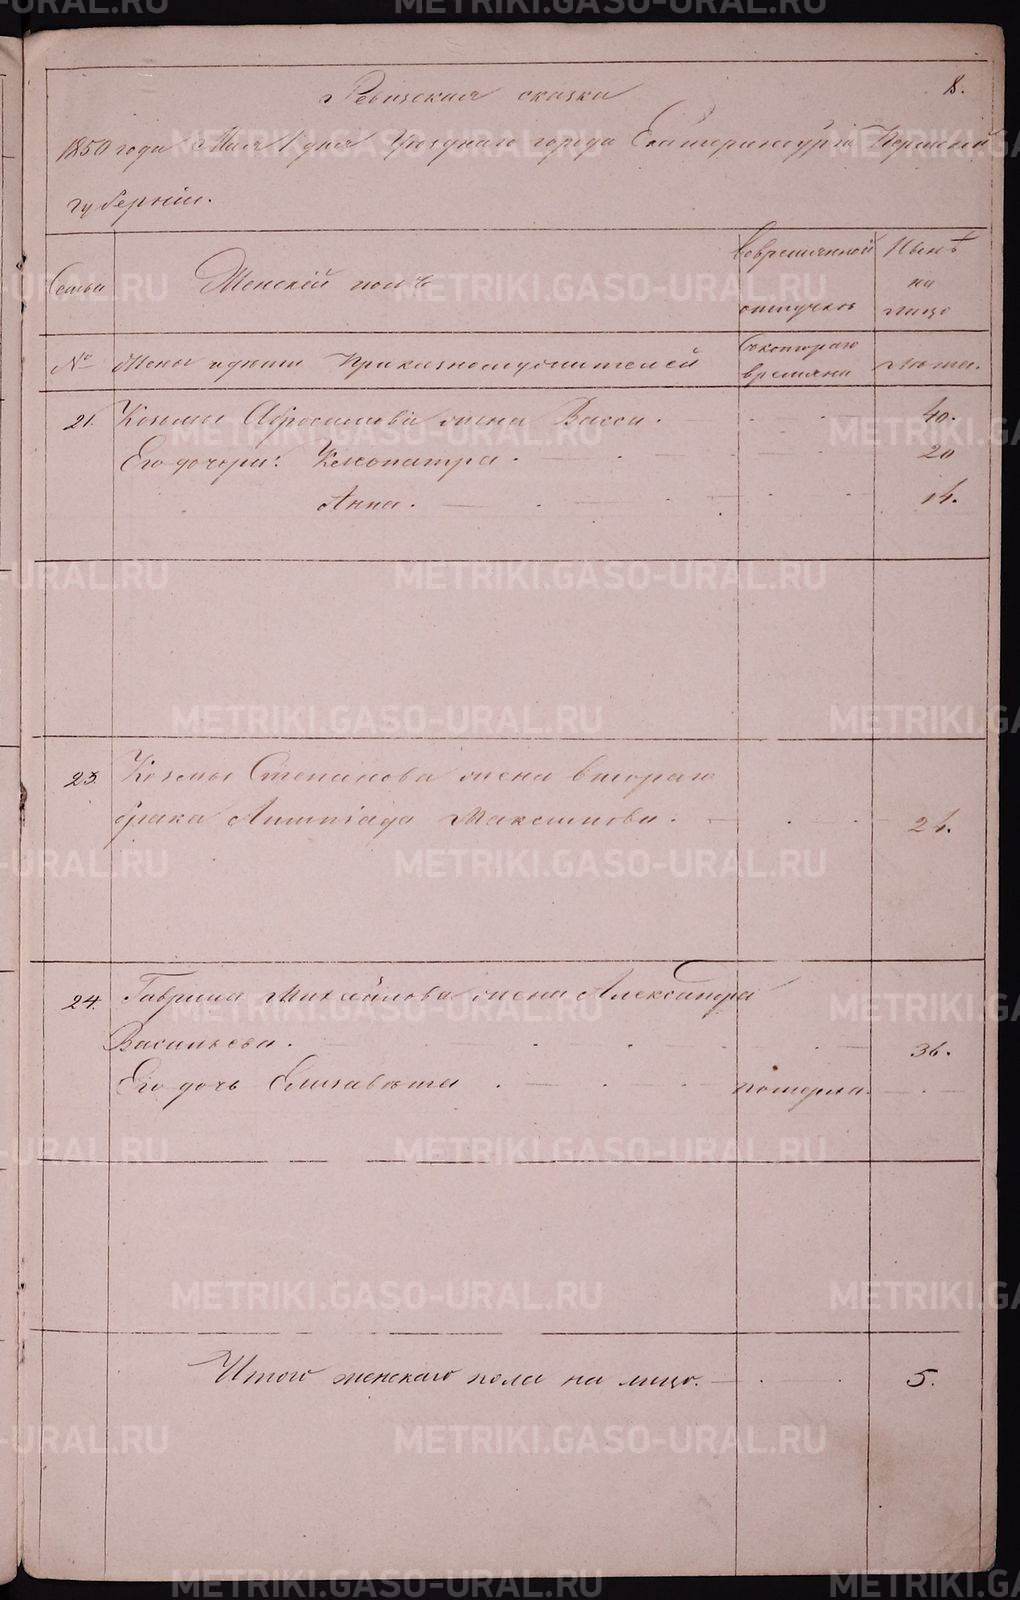 8.
Ревизская сказка
1850 года Мая 1 дня Уезднаго города Екатеринбурга Пермской
губернiи.
Семьи
Женскiй полъ
Вовремянной
отлучкѣ
Нынѣ
на
лицо
№
Жены и дети
Съкотораго
времяни
лета.
21. Козьмы Абросимова жена Васса. 40.
Его дочери: Клеопатра. 20
Анна. 14.
23. Козьмы Степанова жена втораго
брака Лимпiада Максимова. 24.
24. Гаврила Михайлова жена Александра
Васильева. 36.
Его дочь Елисавѣта померла.
Итого женскаго пола на лицо. 5.
METRIKI.GASO-URAL.RU